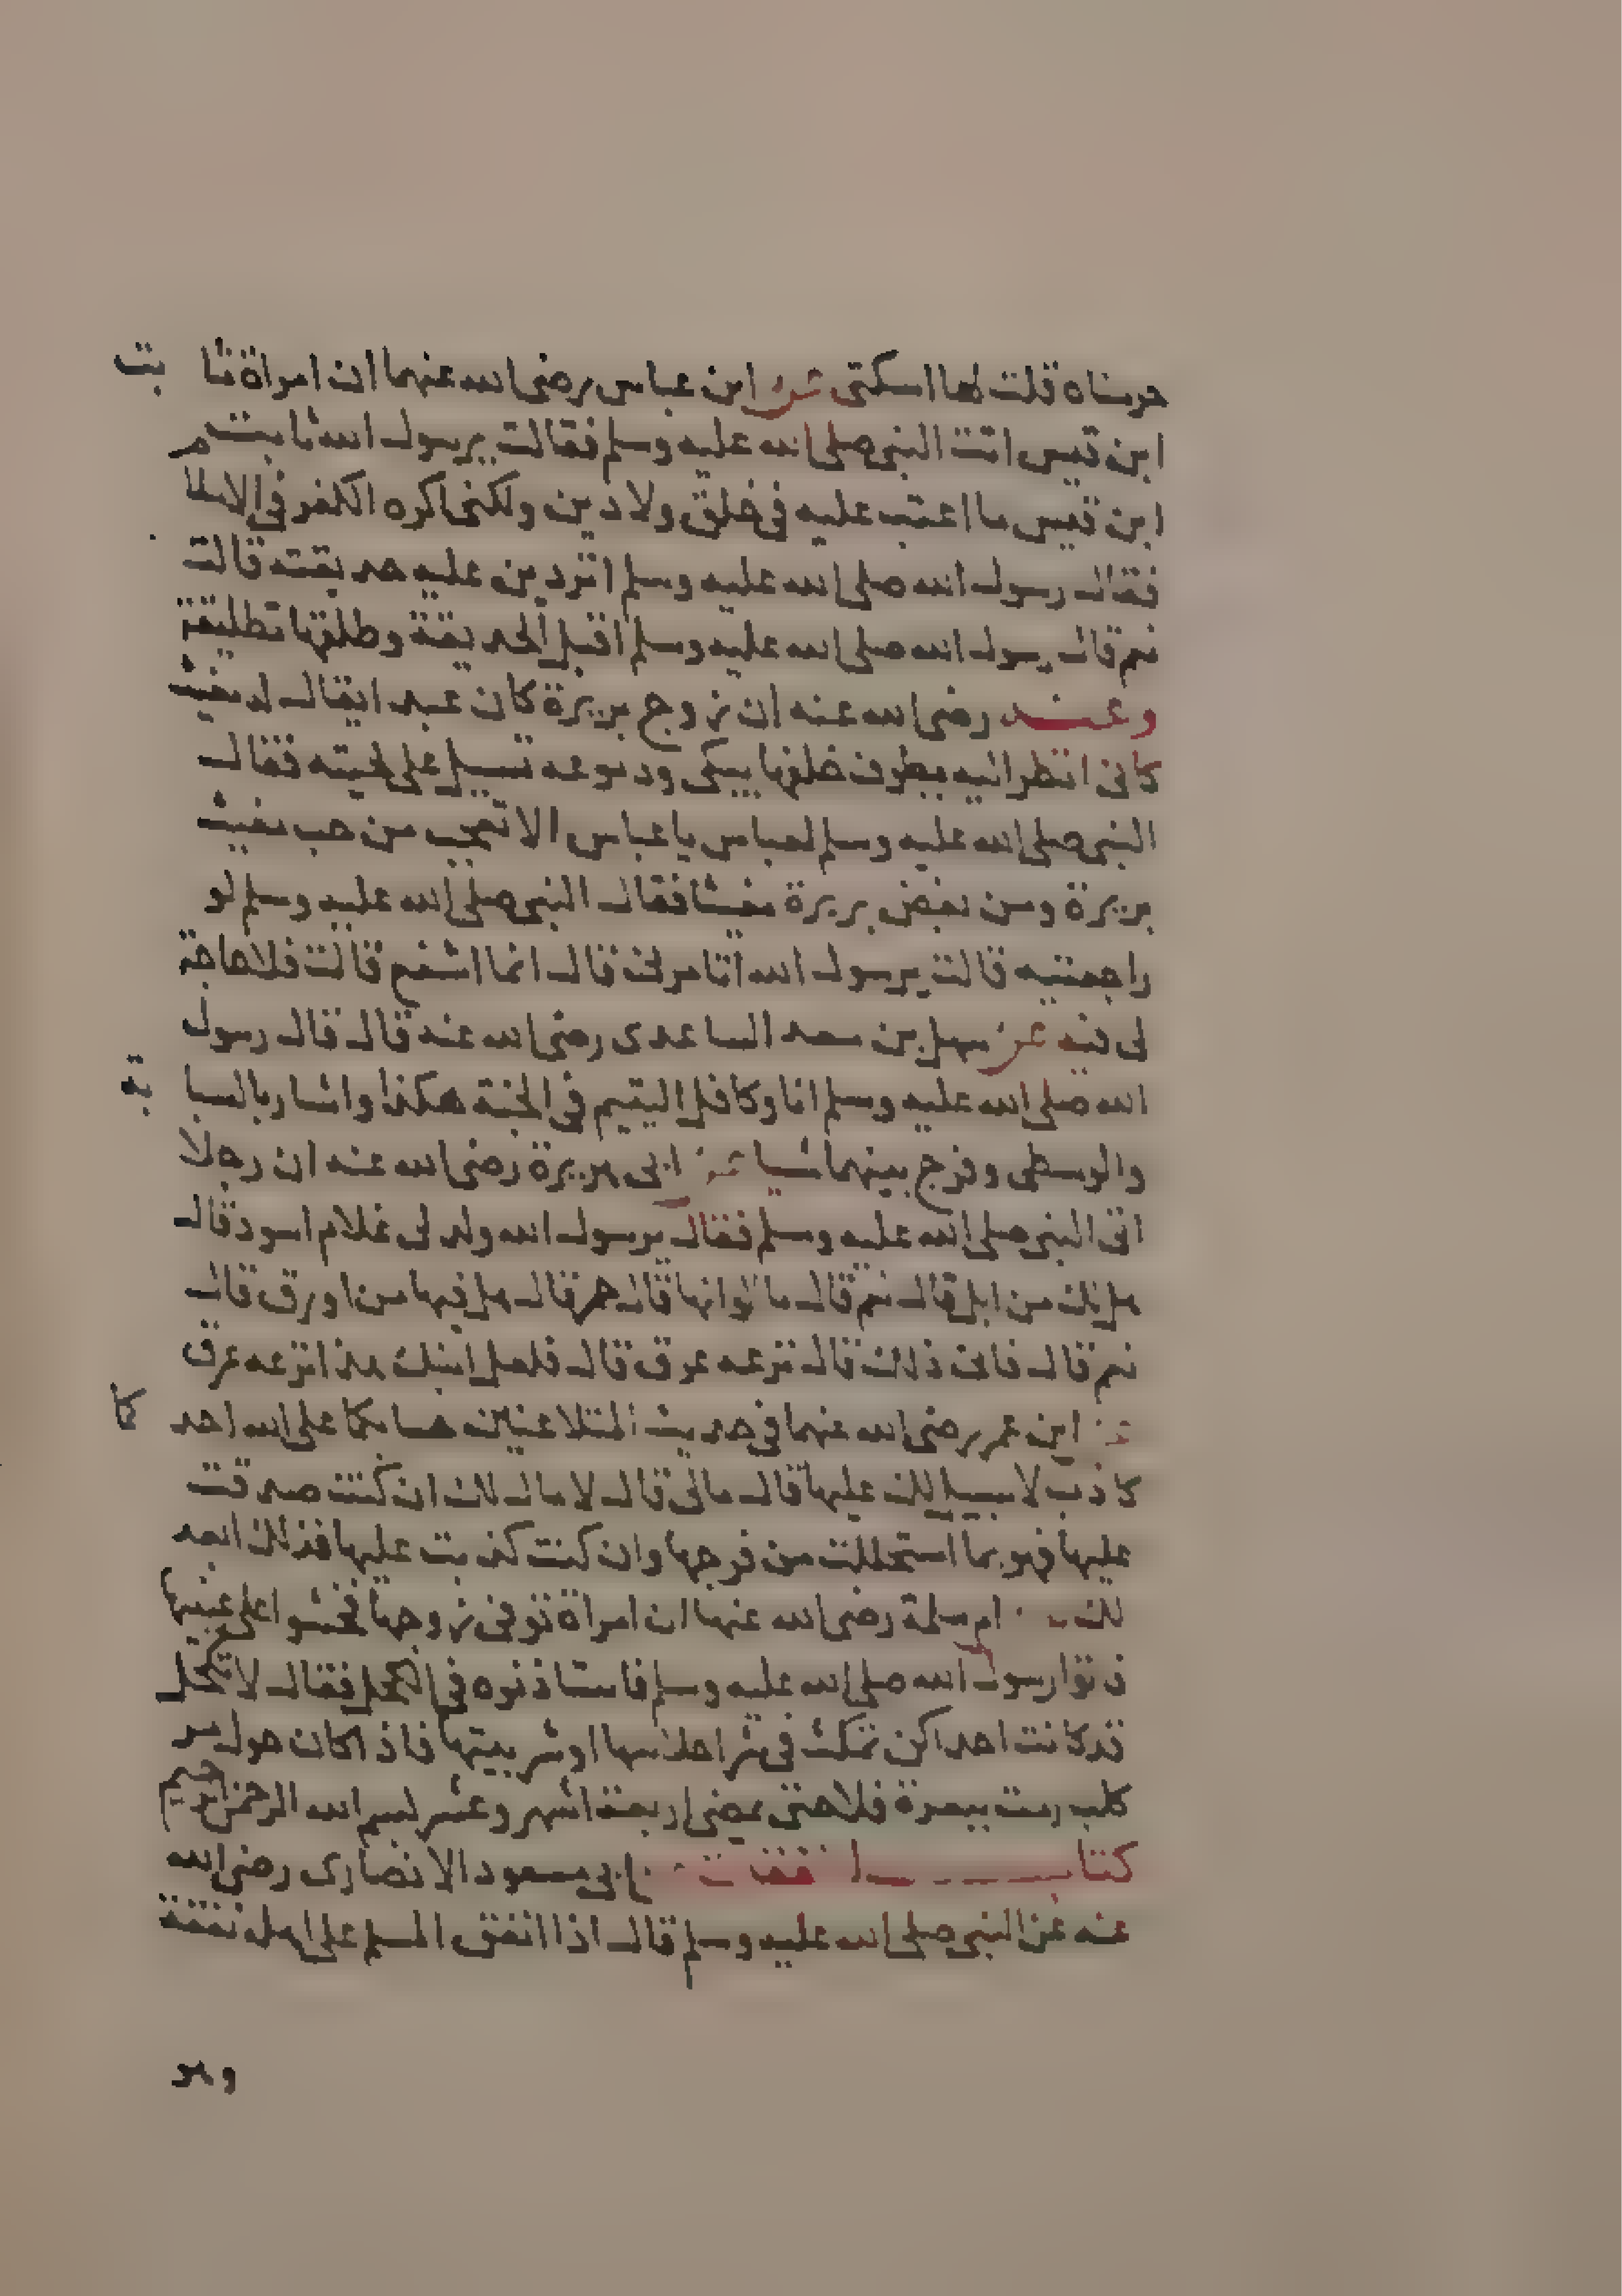 حرمناه قلت لها اسكتى عن ابن عباس رضى الله عنهما ان امراة ثا بت
ابن قيس اتت النبى صلى الله عليه وسلم فقالت يرسول الله ثابت
ابن قيس ما اعتب عليه فى خلق ولا دين ولكنى اكره الكفر فى الاسلا
فقال رسول الله صلى الله عليه وسلم اتردين عليه حديقته قالت
نعم قال رسول الله صلى الله عليه وسلم اقبل الحديقة وطلقها تطليقة
وعنه رضى الله عنه ان زوج بريرة كان عبدا يقال له مغيث
كانى انظر اليه يطوف خلفها يبكى ودموعه تسيل على لحيته فقال
النبى صلى الله عليه وسلم لعباس يا عباس الا تعجب من حب مغيث
بريرة ومن بغض بريرة مغيثا فقال النبى صلى الله عليه وسلم لو
راجعتيه قالت يرسول الله اتامرنى قال انما اشفع قالت فلا حاجة
لى فيه عن سهل بن سعد الساعدى رضى الله عنه قال قال رسول
الله صلى الله عليه وسلم انا وكافل اليتيم فى الجنة هكذا واشار بالسبا بة
والوسطى وفرج بينهما شيا عن ابى هريرة رضى الله عنه ان رجلا
اتى النبى صلى الله عليه وسلم فقال يرسول الله ولد لى غلام اسود قال
هل لك من ابل قال نعم قال ما الوانها قال حمر قال هل فيها من اورق قال
نعم قال فانى ذلك قال نزعه عرق قال فلعل ابنك هذا نزعه عرق
عن ابن عمر رضى الله عنهما فى حديث المتلاعنين حسابكما على الله احد كما
كاذب لا سبيل لك عليها قال مالى قال لا مال لك ان كنت صدقت
عليها فهو بما استحللت من فرجها وان كنت كذبت عليها فذلك ابعد
لك ام سلمة رضى الله عنها ان امراة توفى زوجها فخشوا على عينيها
فاتوا رسول الله صلى الله عليه وسلم فاستاذنوه فى الكحل فقال لا تكحل
قد كانت احداكن تمكث فى شر احلاسها او شر بيتها فاذا كان حول مر
كلب رمت ببعرة فلا حتى تمضى اربعة اشهر وعشر بسم الله الرحمن الرحيم
كتاب النفقات عن ابى مسعود الانصارى رضى الله
عنه عن النبى صلى الله عليه وسلم قال اذا انفق المسلم على اهله نفقة
وهو